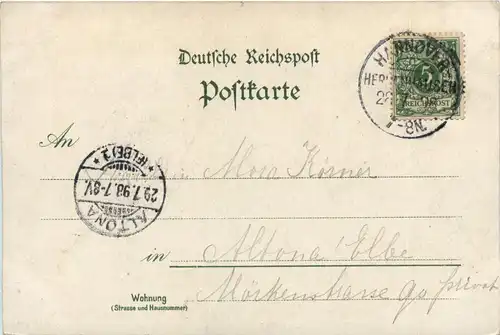 Deutsche Reichspost
Postkarte
HANNOVER
HERRENHAUSEN
7-8N.
REICHSPOST
5
An
Körner
(ELBE) 1
29.7.98.7-8V.
ALTONA
in Altona Elbe
Wohnung
(Strasse und Hausnummer)
Mörkenstrasse 90 privat